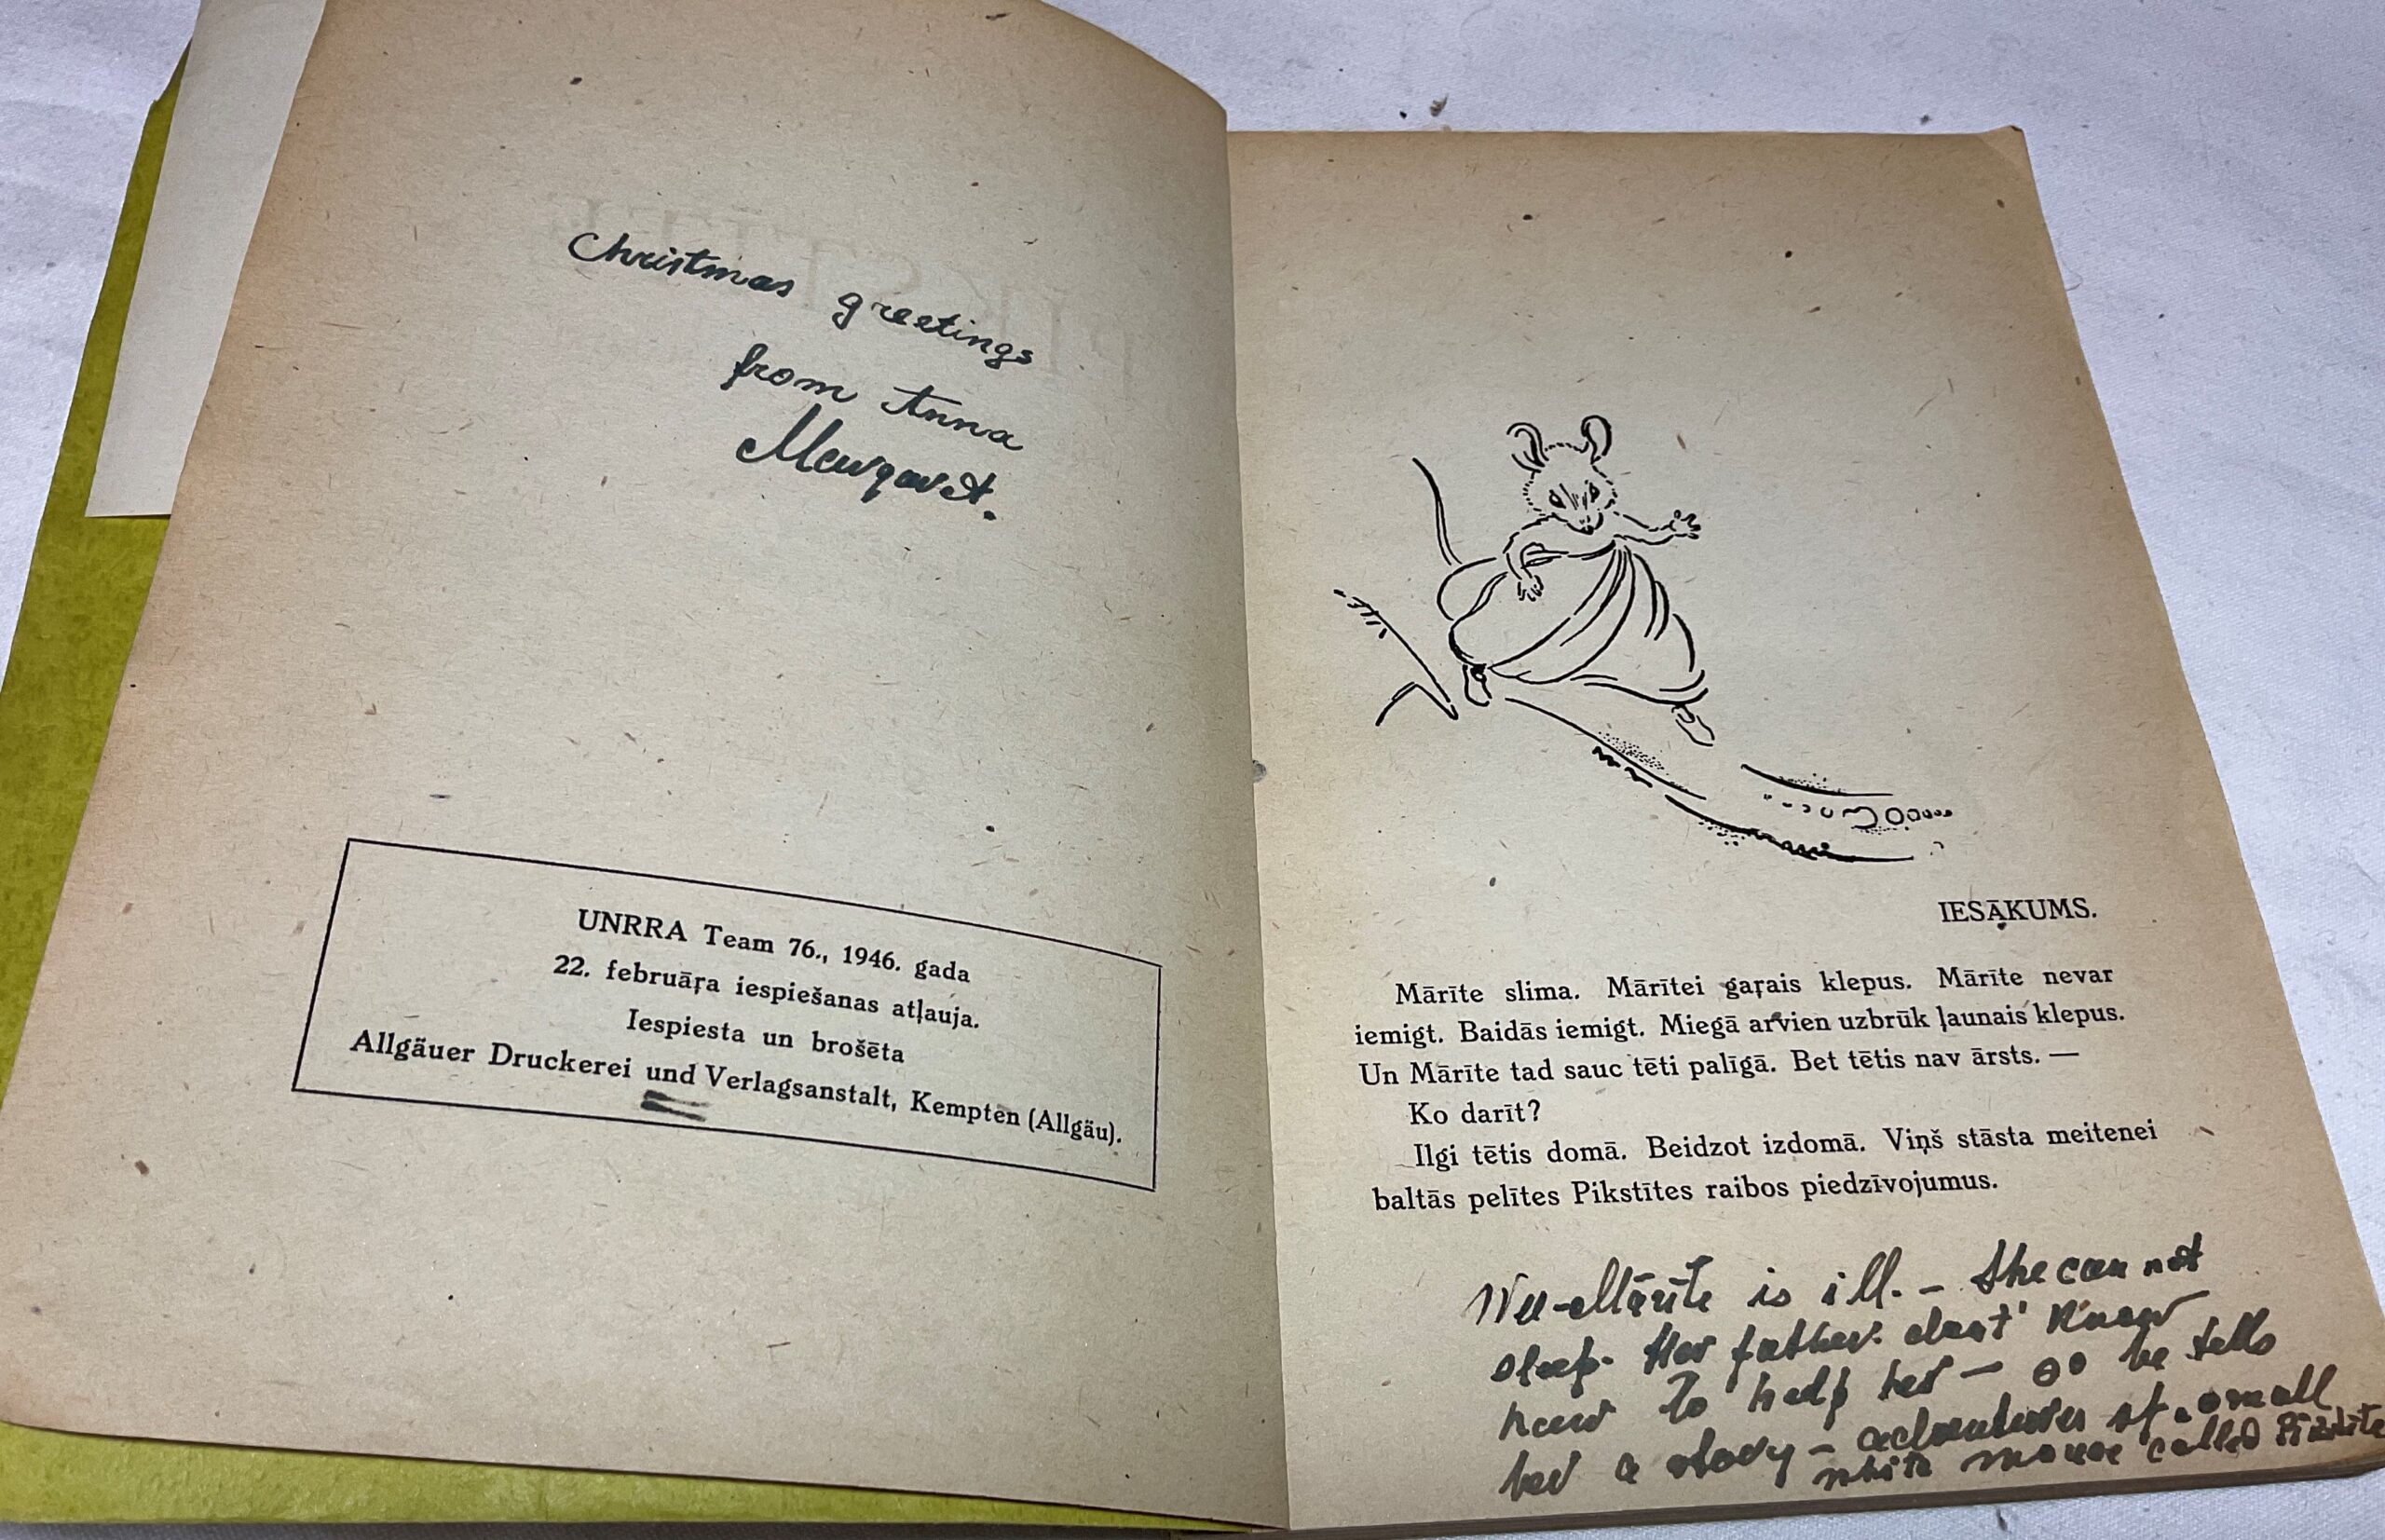 Christmas greetings
from Anna
Margaret.
UNRRA Team 76., 1946. gada
22. februāŗa iespiešanas atļauja.
Iespiesta un brošēta
Allgäuer Druckerei und Verlagsanstalt, Kempten (Allgäu).
IESĀKUMS.
Mārīte slima. Mārītei gaŗais klepus. Mārīte nevar
iemigt. Baidās iemigt. Miegā arvien uzbrūk ļaunais klepus.
Un Mārīte tad sauc tēti palīgā. Bet tētis nav ārsts. —
Ko darīt?
Ilgi tētis domā. Beidzot izdomā. Viņš stāsta meitenei
baltās pelītes Pikstītes raibos piedzīvojumus.
Mārīte is ill. – She can not
sleep. Her father don't know
how to help her — so he tells
her a story – adventures of a small
white mouse called Pīkstīte